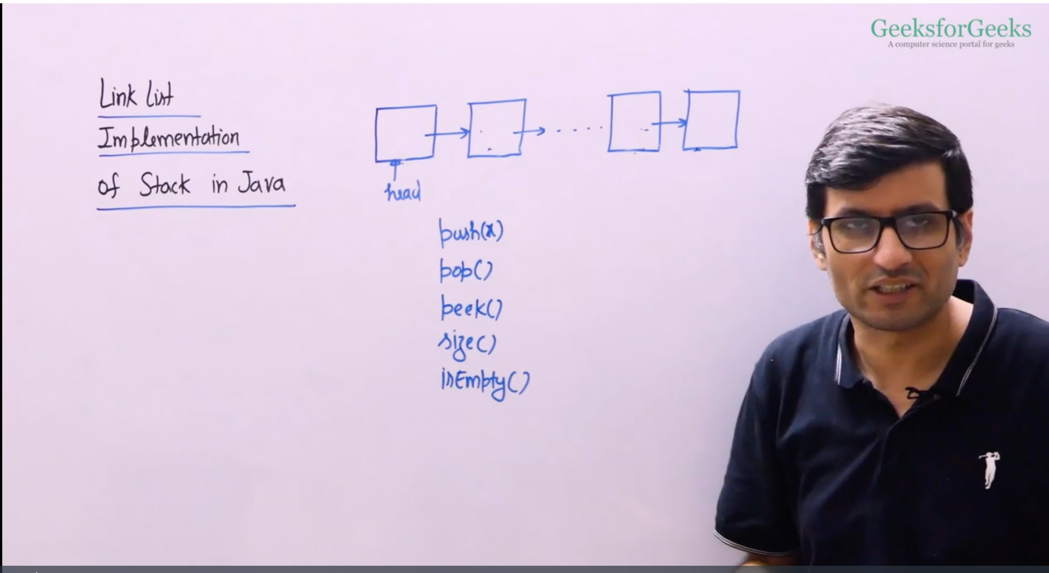 GeeksforGeeks
A computer science portal for geeks
Link List
Implementation
of Stack in Java
head
push(x)
pop()
peek()
size()
isEmpty()